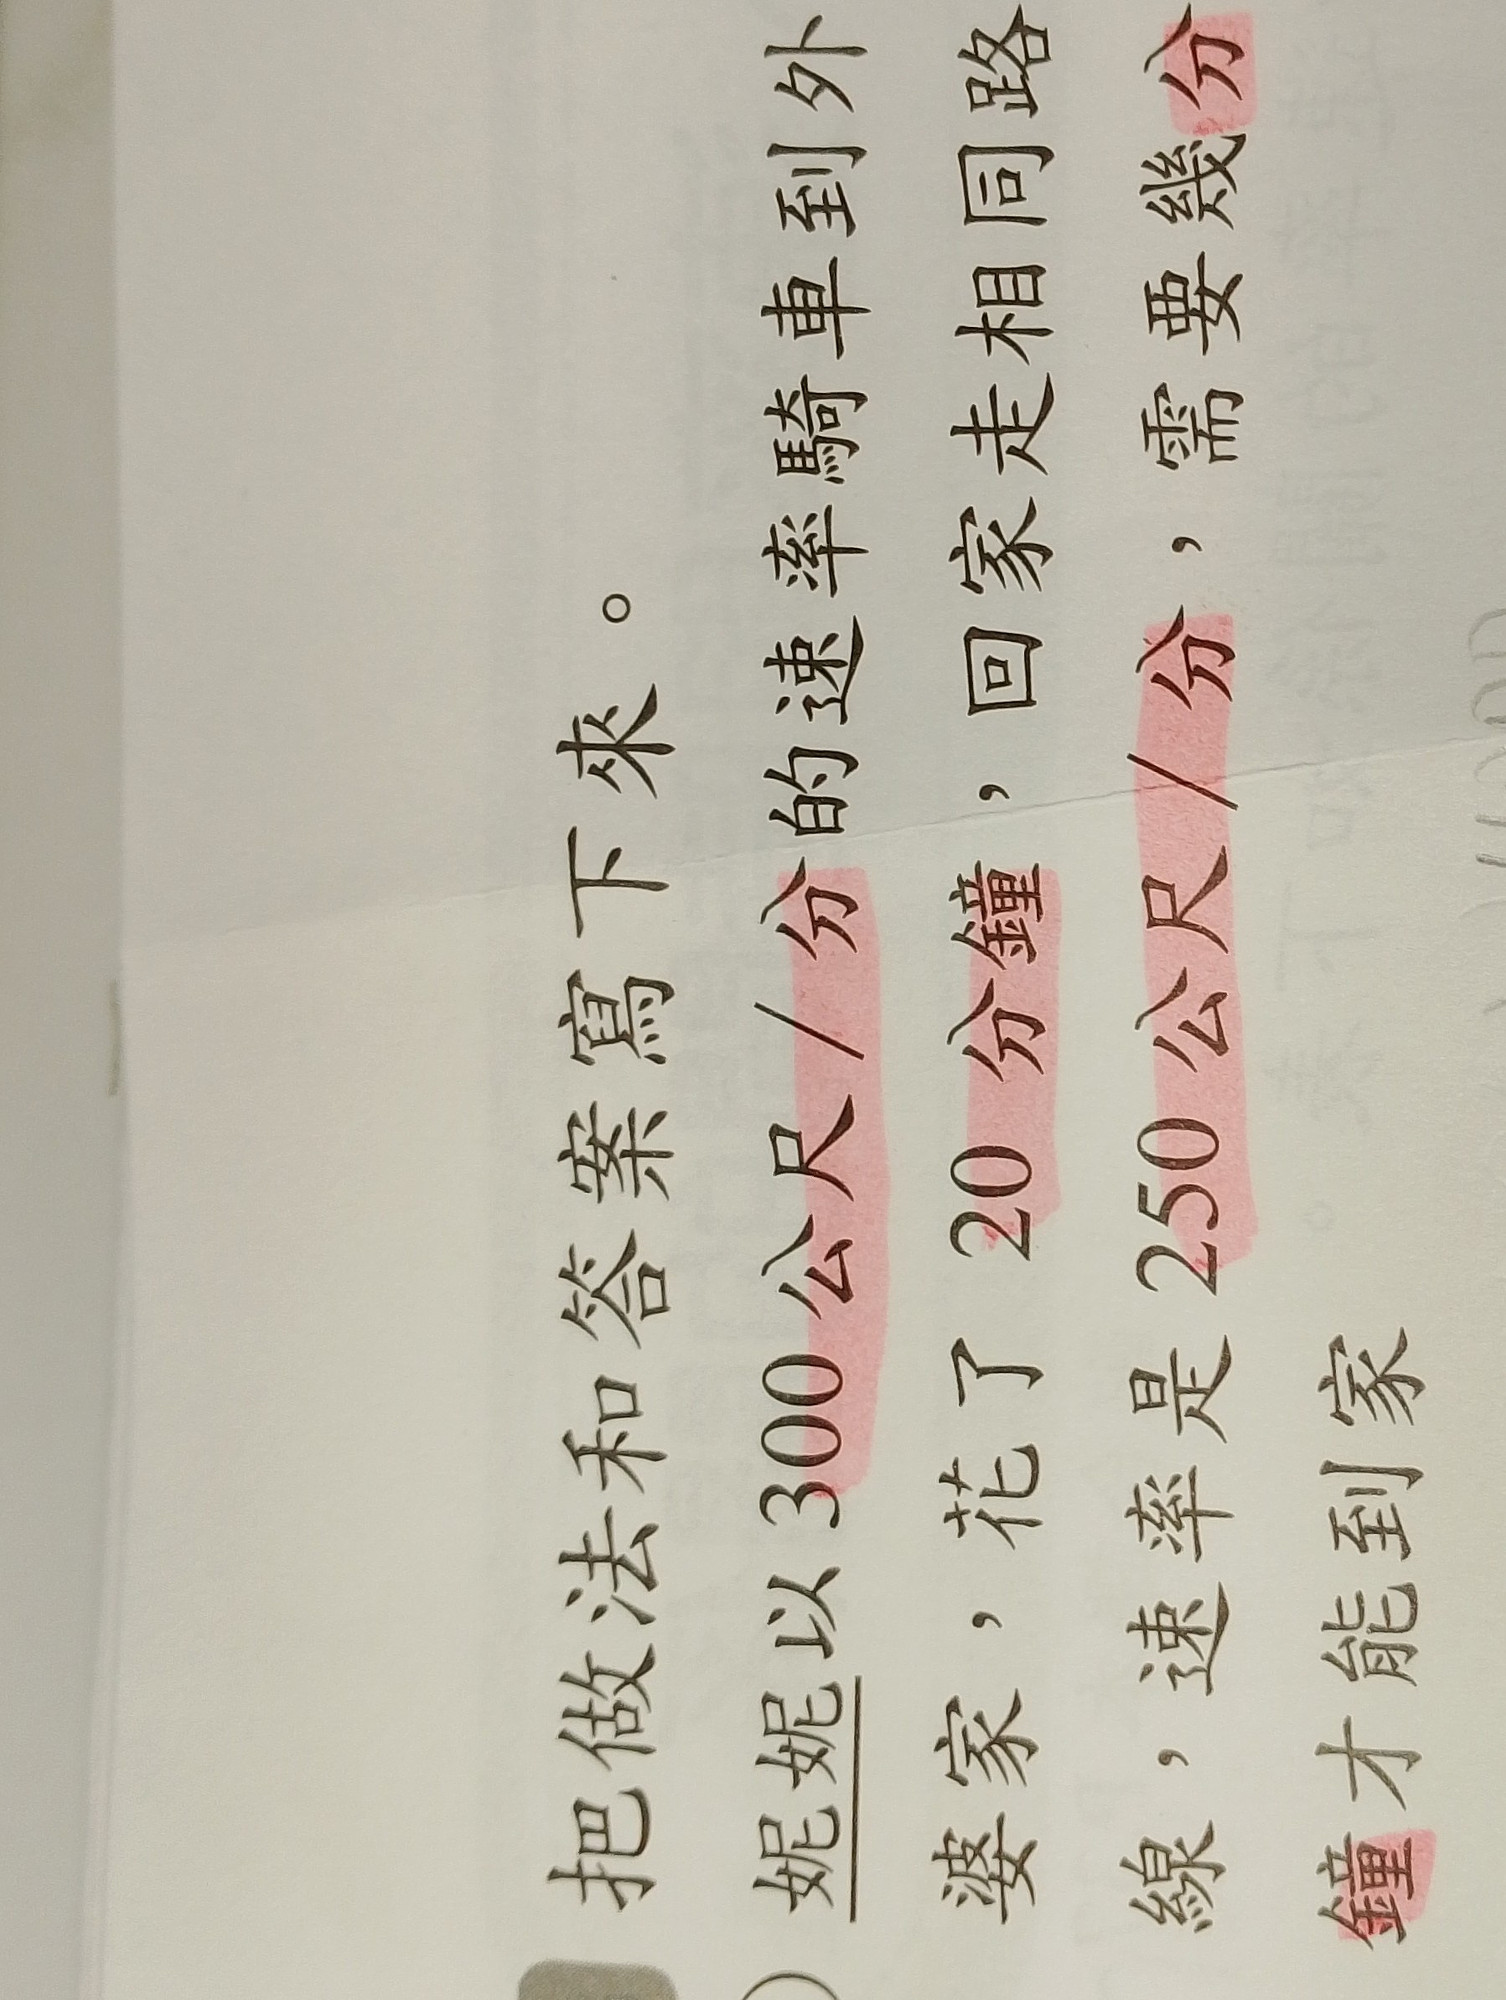 把做法和答案寫下來。
妮妮以300公尺/分的速率騎車到外
婆家,花了20分鐘,回家走相同路
線,速率是250公尺/分,需要幾分
鐘才能到家